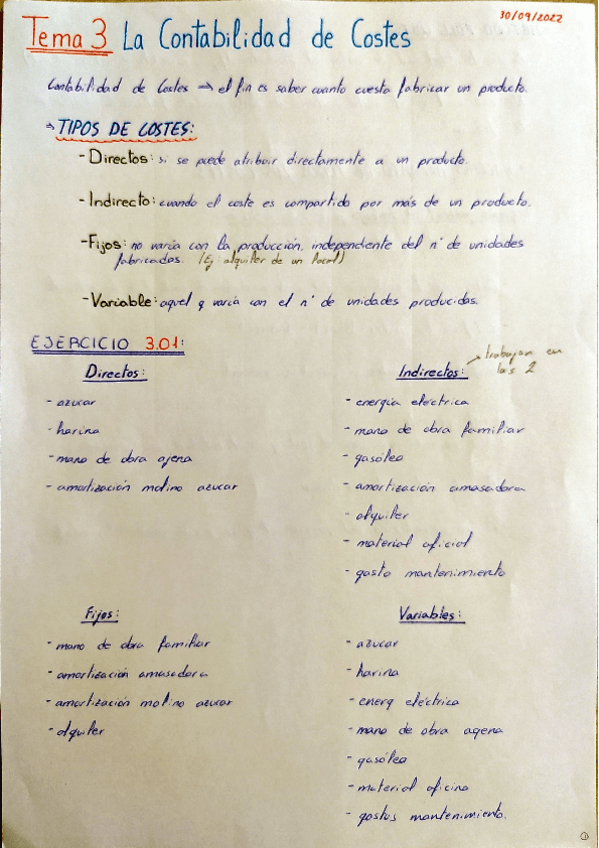 30/09/2022
Tema 3 La Contabilidad de Costes
Contabilidad de Costes → el fin es saber cuanto cuesta fabricar un producto.
→ TIPOS DE COSTES:
- Directos: si se puede atribuir directamente a un producto.
- Indirecto: cuando el coste es compartido por más de un producto.
- Fijos: no varía con la producción, independente del nº de unidades
fabricadas. (Ej: alquiler de un local)
- Variable: aquel q varía con el nº de unidades producidas.
EJERCICIO 3.01:
Directos:
- azucar
- harina
- mano de obra ajena
- amortización molino azucar
Indirectos: → trabajan en
las 2
- energía eléctrica
- mano de obra familiar
- gasóleo
- amortización amasadora
- alquiler
- material oficial
- gasto mantenimiento
Fijos:
- mano de obra familiar
- amortización amasadora
- amortización molino azucar
- alquiler
Variables:
- azucar
- harina
- energ eléctrica
- mano de obra agena
- gasóleo
- material oficina
- gastos mantenimiento.
1